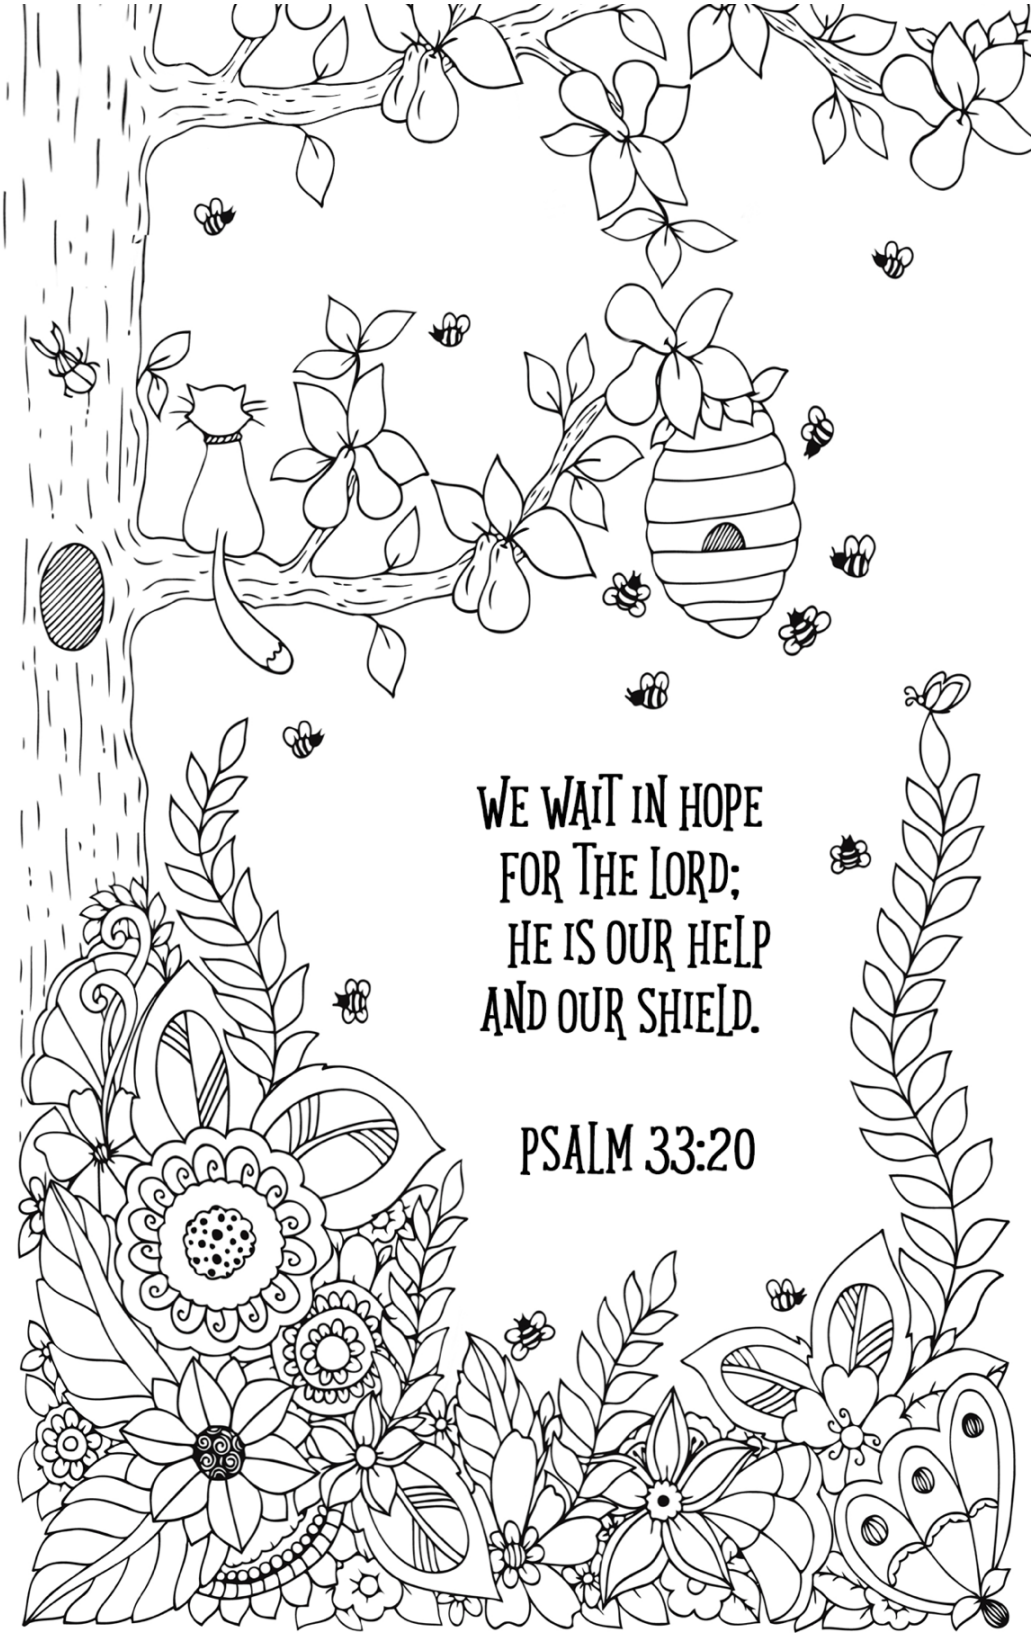 WE WAIT IN HOPE
FOR THE LORD;
HE IS OUR HELP
AND OUR SHIELD.
PSALM 33:20